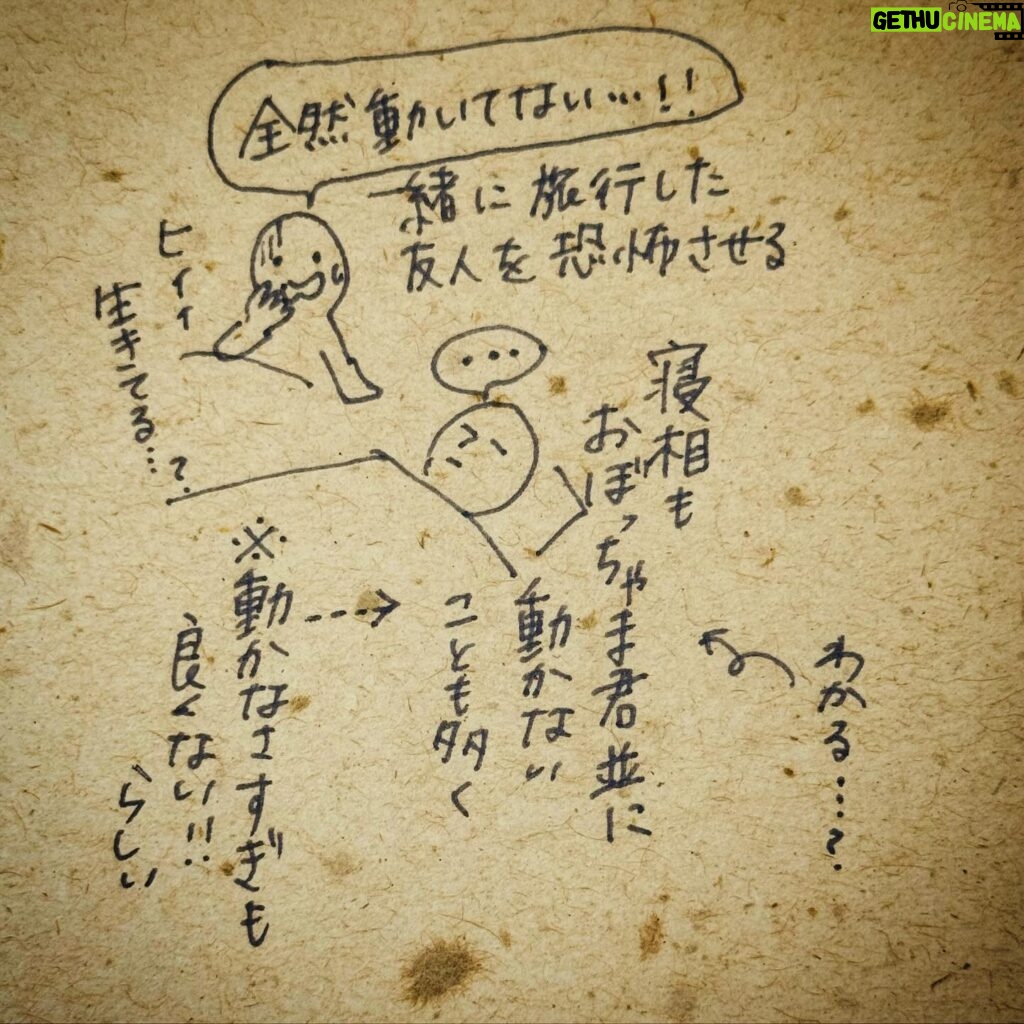 GETHUCINEMA
全然動いてない…!!
一緒に旅行した
友人を恐怖させる
ヒィィ
生きてる…?
…
寝相も
おぼっちゃま君並に
動かない
ことも多く
わかる…?
※動かなさすぎも
良くない!!
らしい